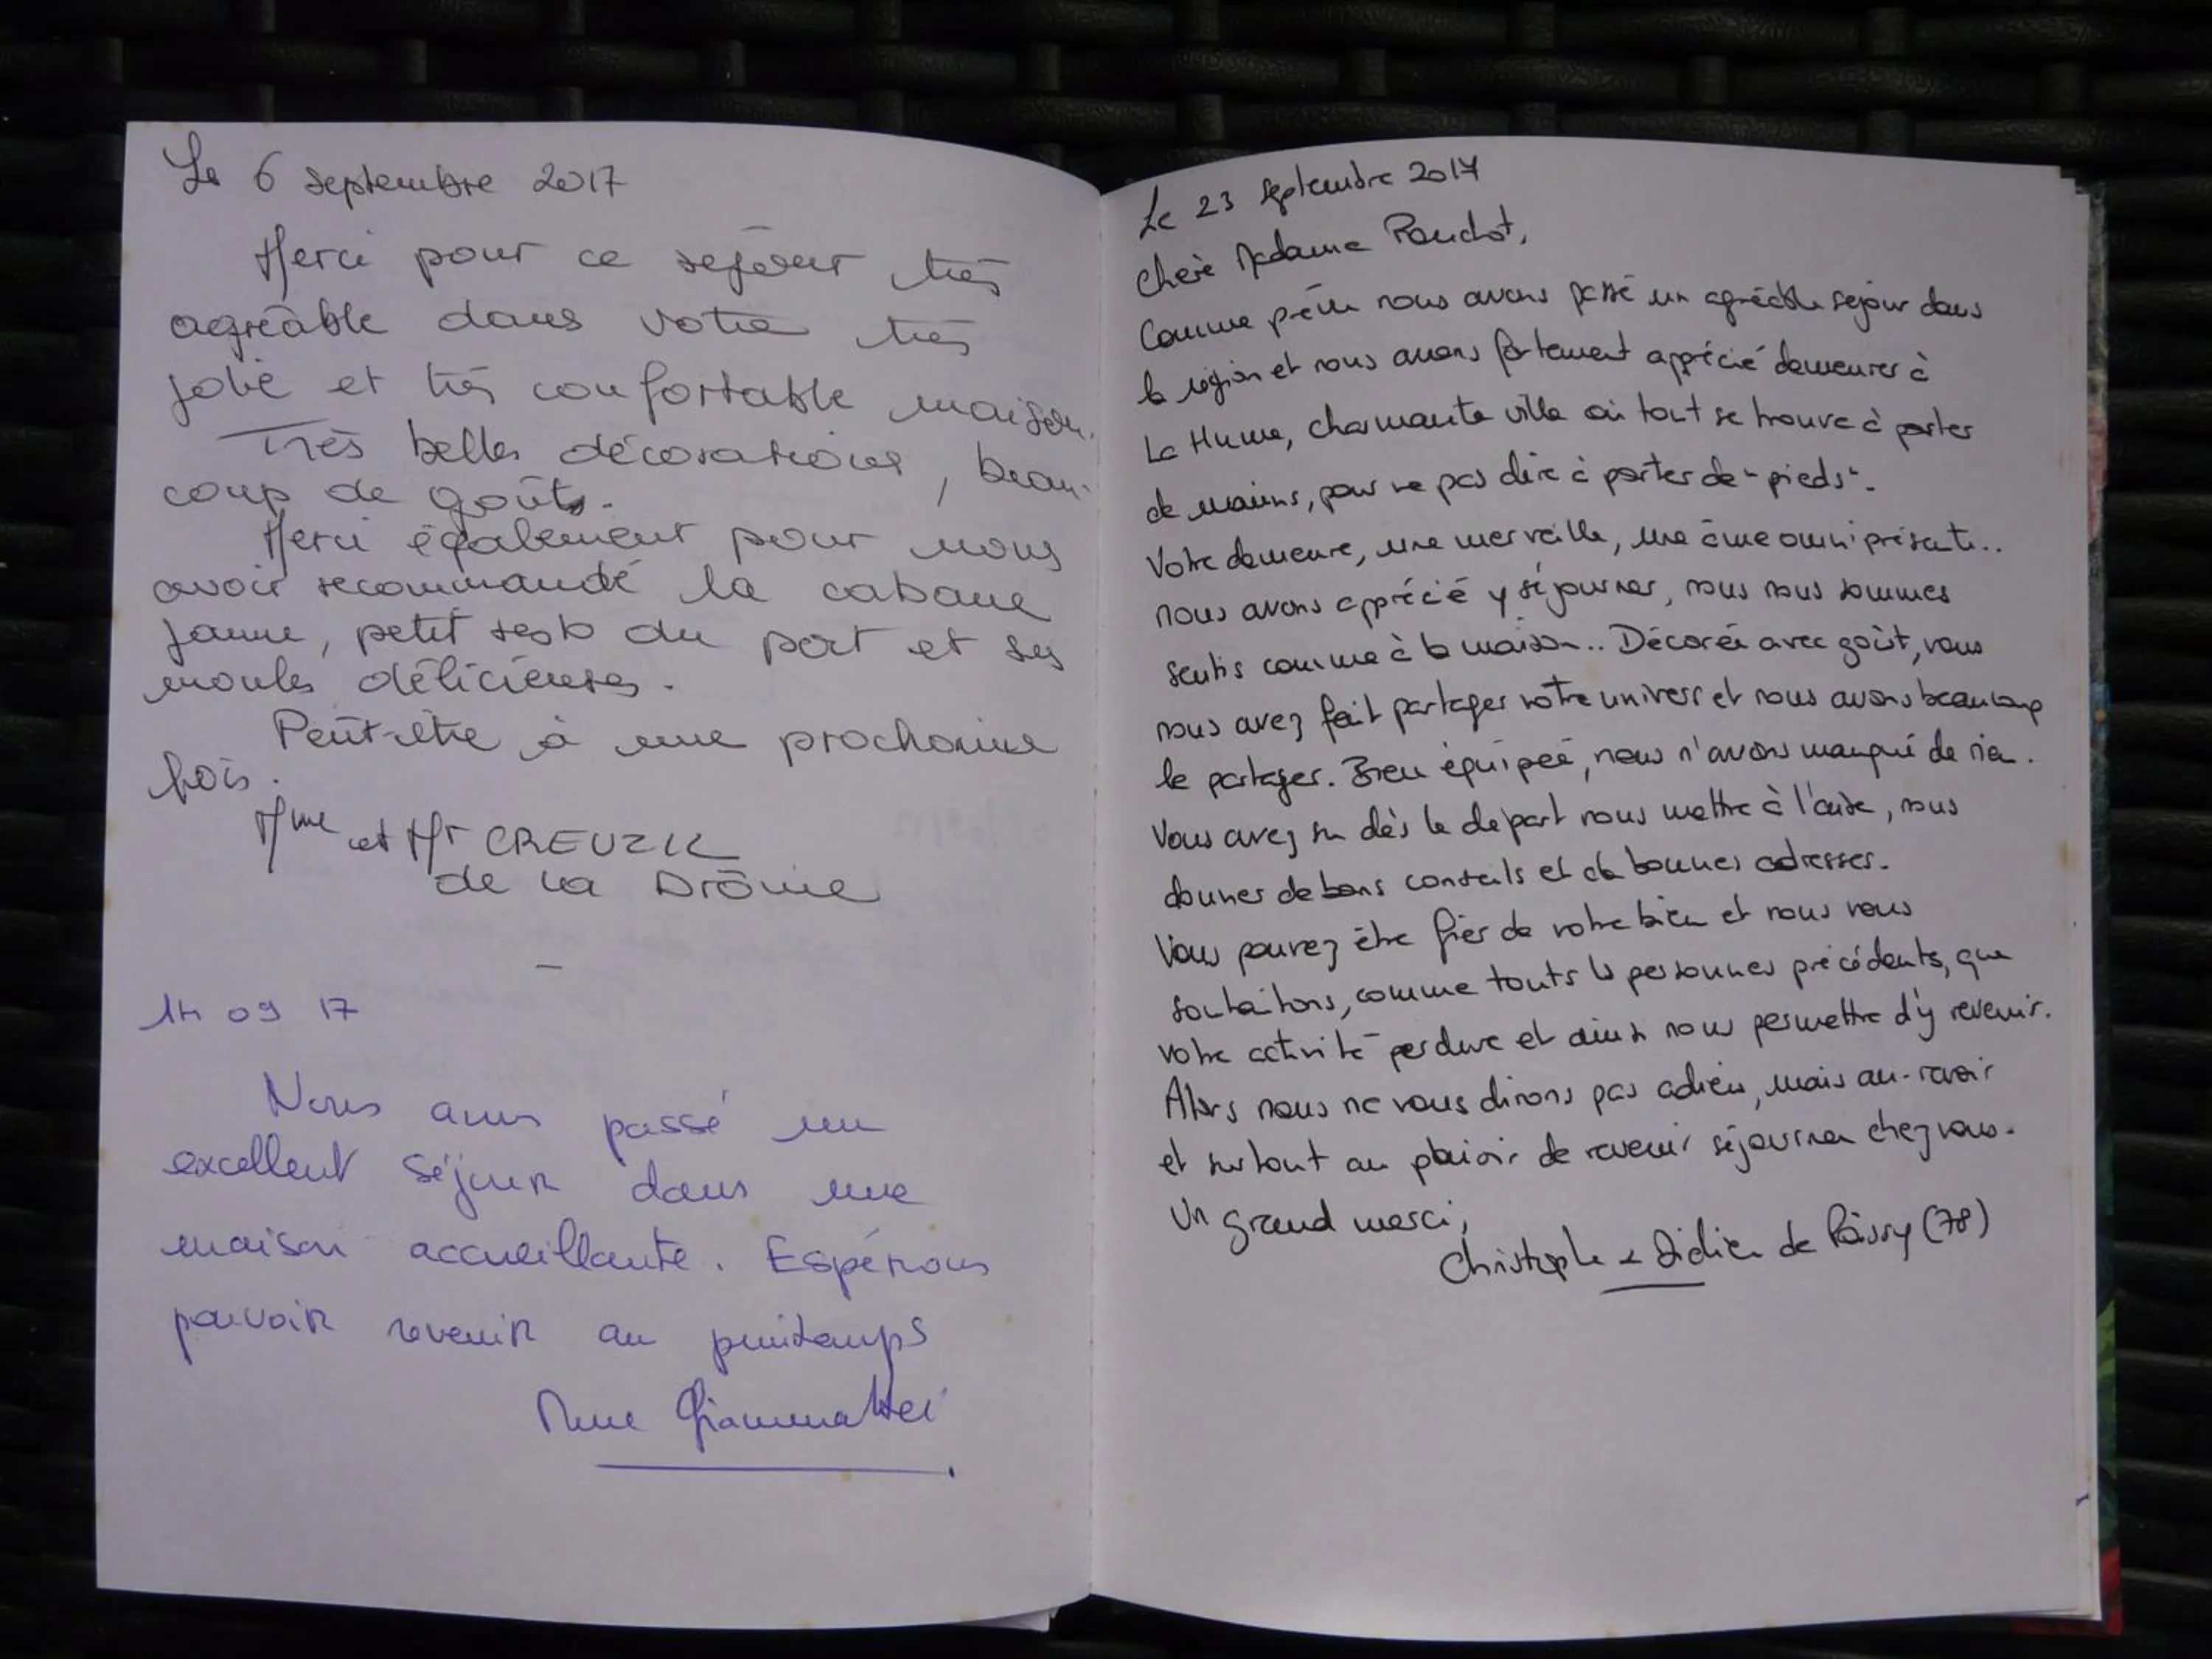 Le 6 septembre 2017
Merci pour ce séjour très
agréable dans votre très
jolie et très confortable maison.
Très belles décorations, beau-
coup de goûts.
Merci également pour nous
avoir recommandé la cabane
jaune, petit resto du port et ses
moules délicieuses.
Peut-être à une prochaine
fois.
Mme et Mr CREUZIL
de la Drôme
14 09 17
Nous avons passé un
excellent séjour dans une
maison accueillante. Espérons
pouvoir revenir au printemps
Mme Giammattei
Le 23 septembre 2017
Chère Madame Pouchot,
Comme prévu nous avons passé un agréable séjour dans
la région et nous avons fortement apprécié demeurer à
La Hume, charmante ville où tout se trouve à porter
de mains, pour ne pas dire à porter de "pieds".
Votre demeure, une merveille, une âme omniprésente..
nous avons apprécié y séjourner, nous nous sommes
sentis comme à la maison.. Décorée avec goût, vous
nous avez fait partager votre univers et nous avons beaucoup
le partager. Bien équipée, nous n'avons manqué de rien.
Vous avez su dès le départ nous mettre à l'aise, nous
donner de bons conseils et de bonnes adresses.
Vous pouvez être fier de votre bien et nous vous
souhaitons, comme touts les personnes précédents, que
votre activité perdure et ainsi nous permettre d'y revenir.
Alors nous ne vous dirons pas adieu, mais au-revoir
et surtout au plaisir de revenir séjourner chez vous.
Un grand merci,
Christophe & Didier de Poissy (78)